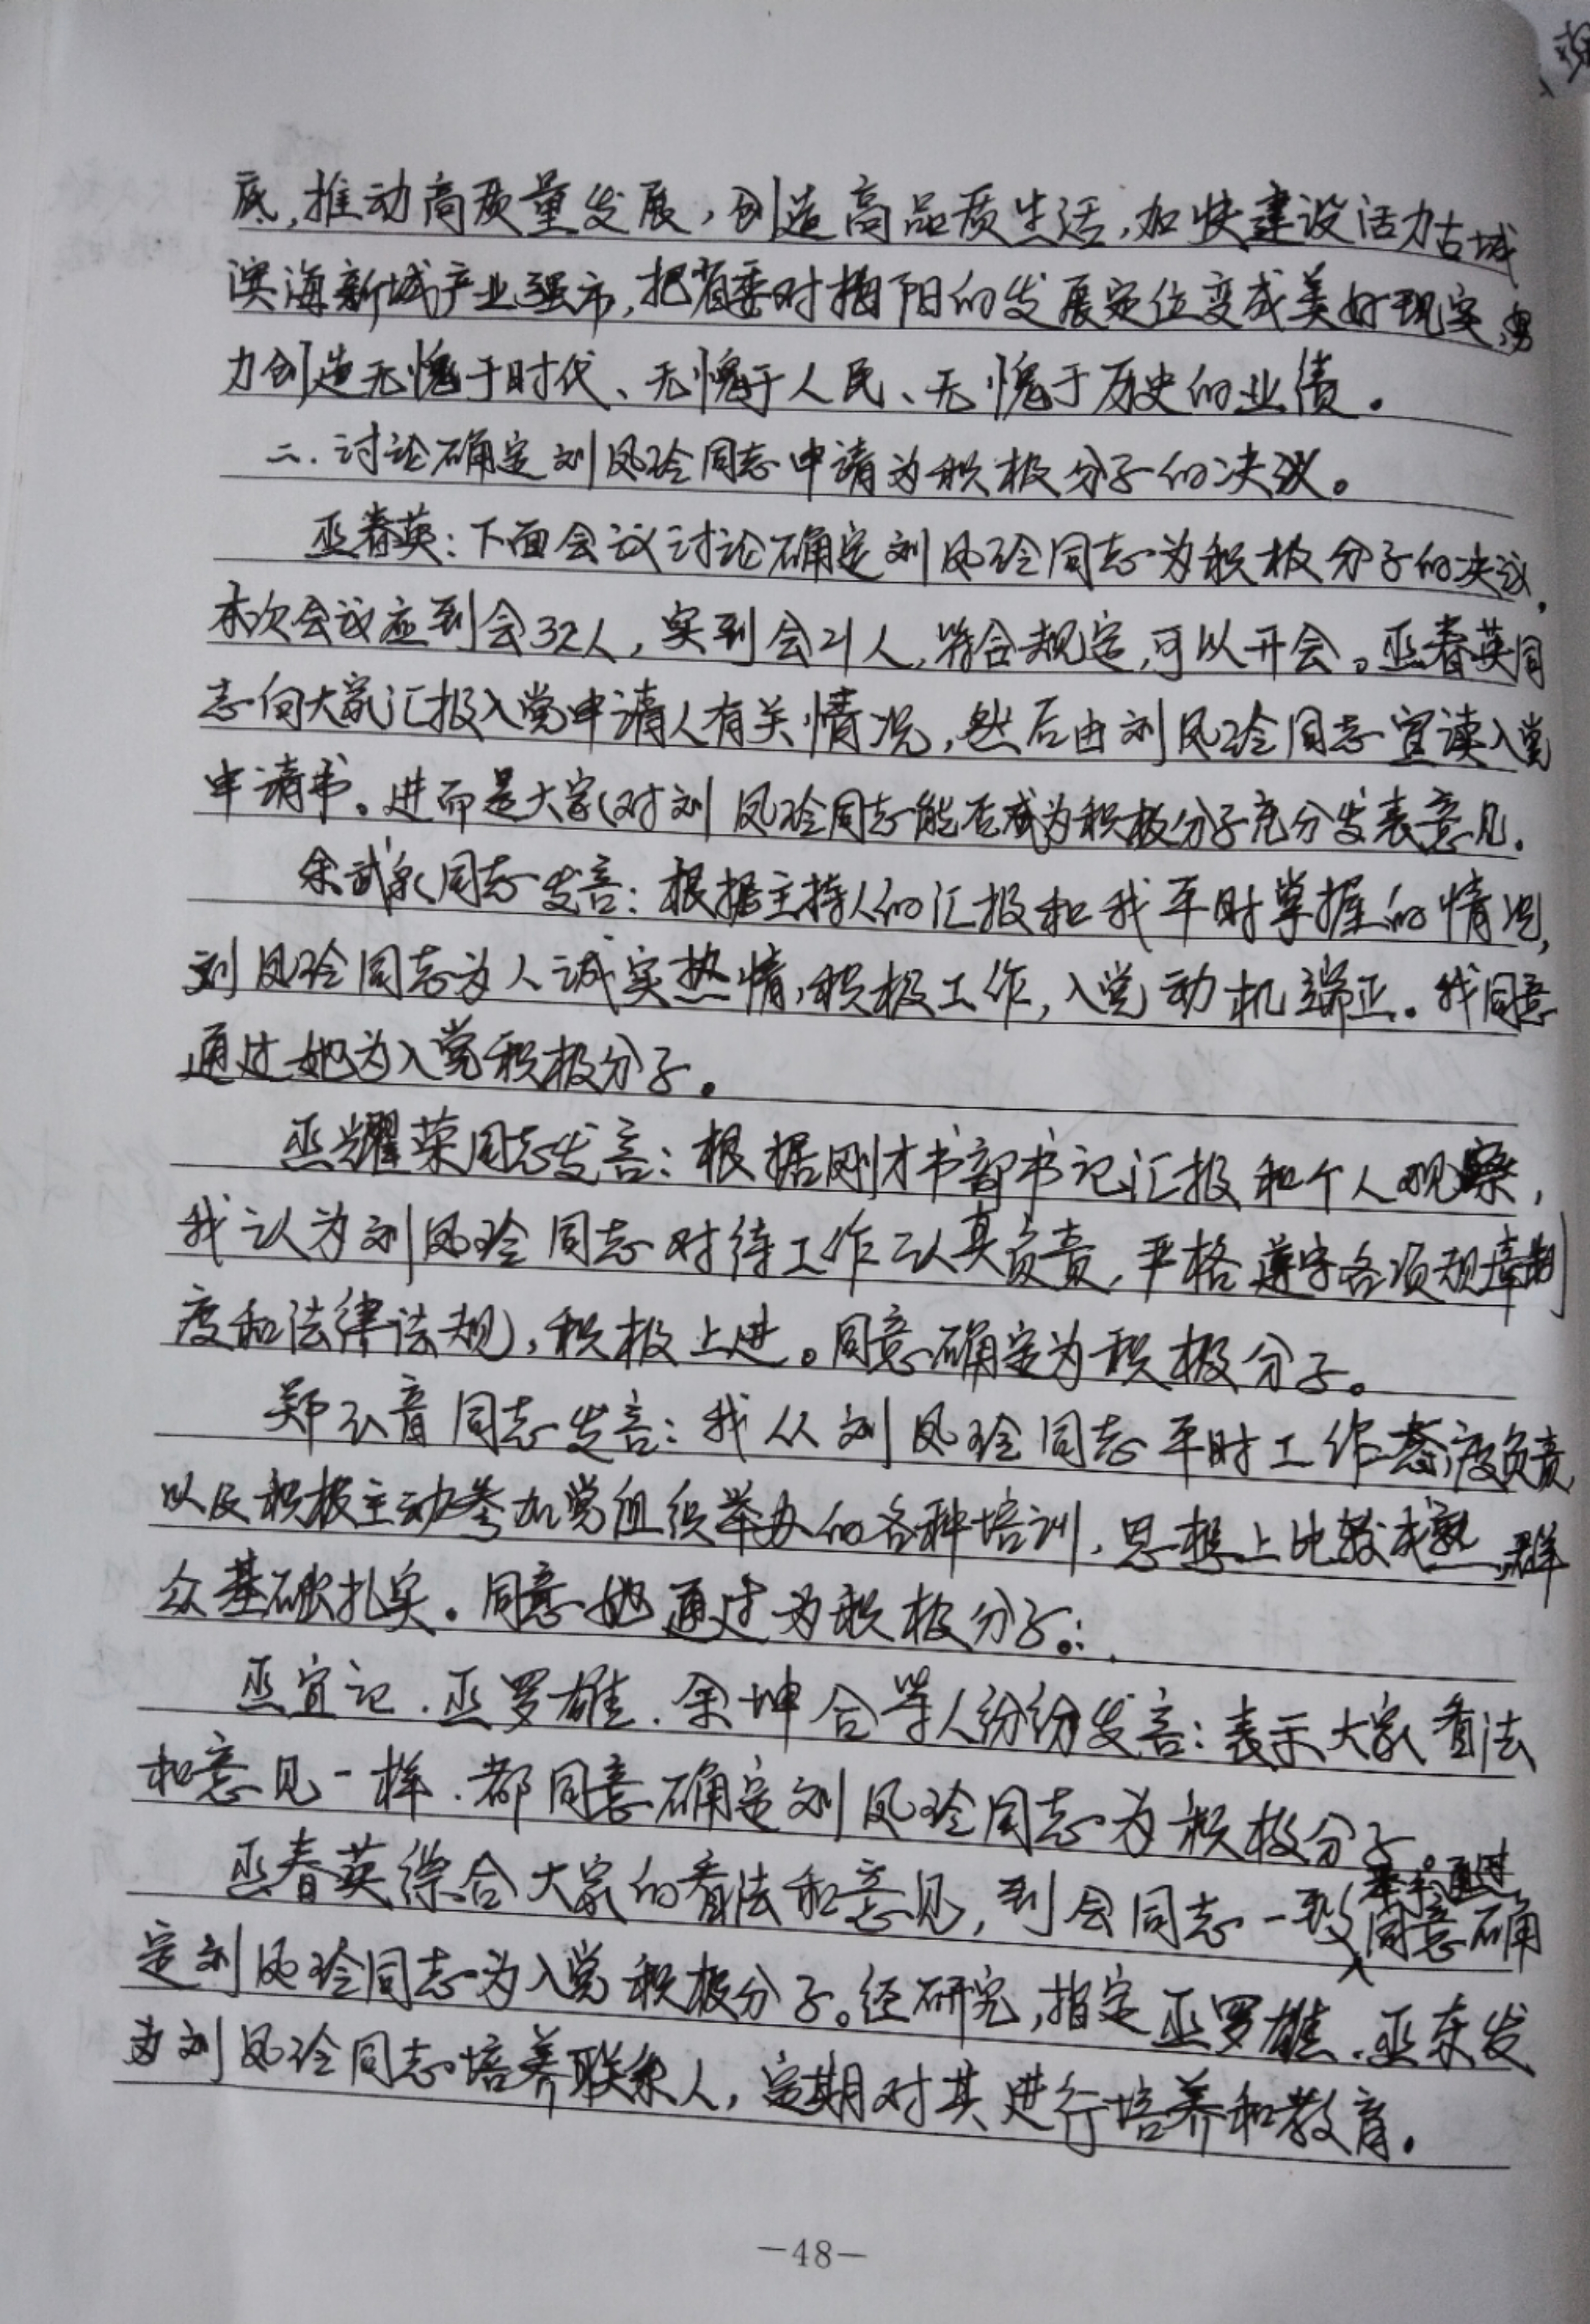 底,推动高质量发展,创造高品质生活,加快建设活力古城
滨海新城产业强市,把省委对揭阳的发展定位变成美好现实,努
力创造无愧于时代、无愧于人民、无愧于历史的业绩。
二.讨论确定刘凤玲同志申请为积极分子的决议。
巫春英:下面会议讨论确定刘凤玲同志为积极分子的决议,
本次会议应到会32人,实到会21人,符合规定,可以开会。巫春英同
志向大家汇报入党申请人有关情况,然后由刘凤玲同志宣读入党
申请书。进而是大家对刘凤玲同志能否成为积极分子充分发表意见.
余武泉同志发言:根据主持人的汇报和我平时掌握的情况,
刘凤玲同志为人诚实热情,积极工作,入党动机端正。我同意
通过她为入党积极分子。
巫耀荣同志发言:根据刚才书部书记汇报和个人观察,
我认为刘凤玲同志对待工作认真负责,严格遵守各项规章制
度和法律法规,积极上进。同意确定为积极分子。
郑弘音同志发言:我从刘凤玲同志平时工作态度负责
以及积极主动参加党组织举办的各种培训,思想上比较成熟,群
众基础扎实。同意她通过为积极分子。
巫宜记.巫罗雄.余坤合等人纷纷发言:表示大家看法
和意见一样.都同意确定刘凤玲同志为积极分子。
巫春英综合大家的看法和意见,到会同志一致举手通过同意确
定刘凤玲同志为入党积极分子。经研究,指定巫罗雄.巫东发
为刘凤玲同志培养联系人,定期对其进行培养和教育。
—48—